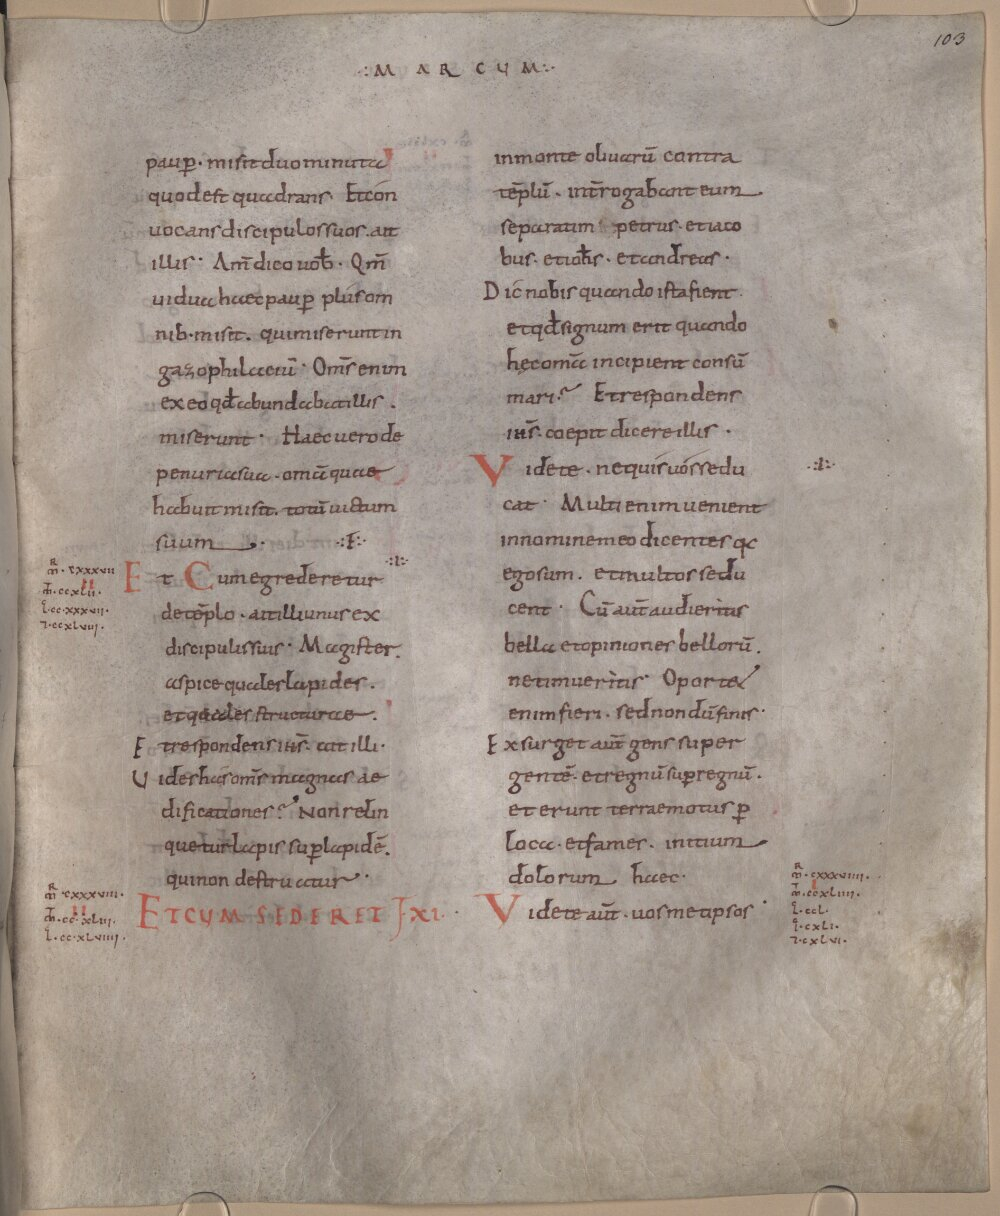 103
·:M AR CUM:·
paup̄· misit duo minuta
quod est quadrans· Et con
uocans discipulos suos· ait
illis· Am̄ dico uob̄· Qm̄
uidua haec paup̄ plus om
nib· misit· qui miserunt in
gazophilaciū· Oms̄ enim
ex eo qd̄ abundabat illis·
miserunt· Haec uero de
penuria sua· omā quae
habuit misit· totū uictum
suum·
Et Cum egrederetur
de tēplo· ait illi unus ex
discipulis suis· Magister·
aspice quales lapides·
et quales structurae·
Et respondens ihs̄· ait illi·
Uides has oms̄ magnas ae
dificationes? Non relin
quetur lapis sup̄ lapidē·
qui non destruatur·
ET CUM SEDERET IXI·
R
m̄· cxxxvii
m̄· ccxlii·
l· ccxxxvii·
r· ccxlviii·
R
m̄· cxxxviii·
m̄· ccxliii·
l· ccxlviiii·
in monte oliuarū contra
tēplū· int̄rogabant eum
separatim petrus· et iaco
bus· et ioh̄s· et andreas·
Dic nobis quando ista fient·
et qd̄ signum erit quando
hęc omā incipient consū
mari? Et respondens
ihs̄· coepit dicere illis·
Videte· ne quis uos sedu
cat· Multi enim uenient
in nomine meo dicentes qa
ego sum· et multos sedu
cent· Cū aut̄ audieritis
bella et opiniones bellorū·
ne timueritis· Oportet
enim fieri· sed nondū finis·
Exsurget aut̄ gens super
gentē· et regnū sup̄ regnū·
et erunt terraemotus p̄
loca· et fames· initium
dolorum haec·
Videte aut̄· uosmetipsos·
R
m̄· cxxxviiii·
m̄· ccxliiii·
l· ccl·
l· cxli·
r· cxlvi·